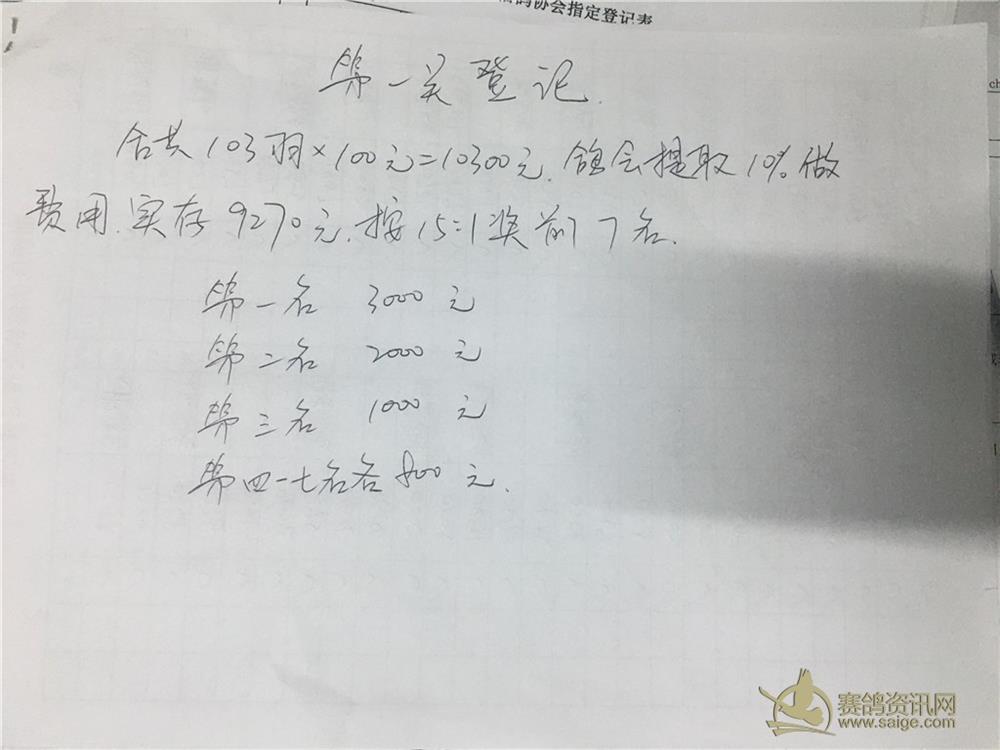 鸽协会指定登记表
ch
第一关登记.
合共103羽×100元=10300元.鸽会提取10%做
费用.实存9270元.按15:1奖前7名.
第一名 3000元
第二名 2000元
第三名 1000元
第四一七名各800元.
赛鸽资讯网
www.saige.com